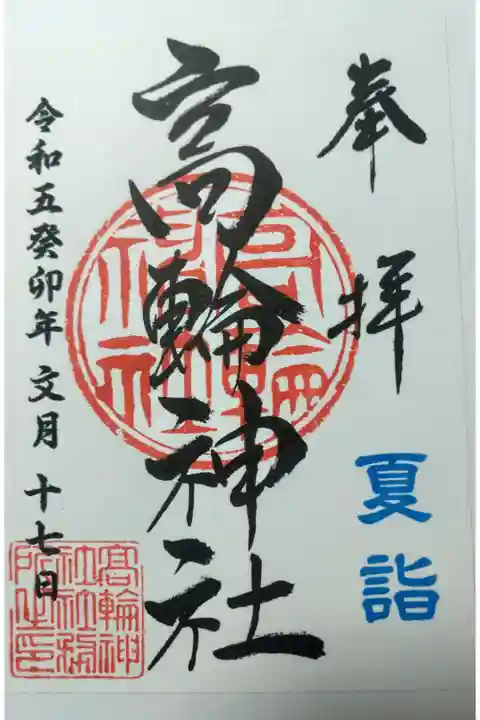 奉拝
夏詣
高輪神社
令和五癸卯年 文月 十七日
高輪神社
高輪神
社社務
所之印